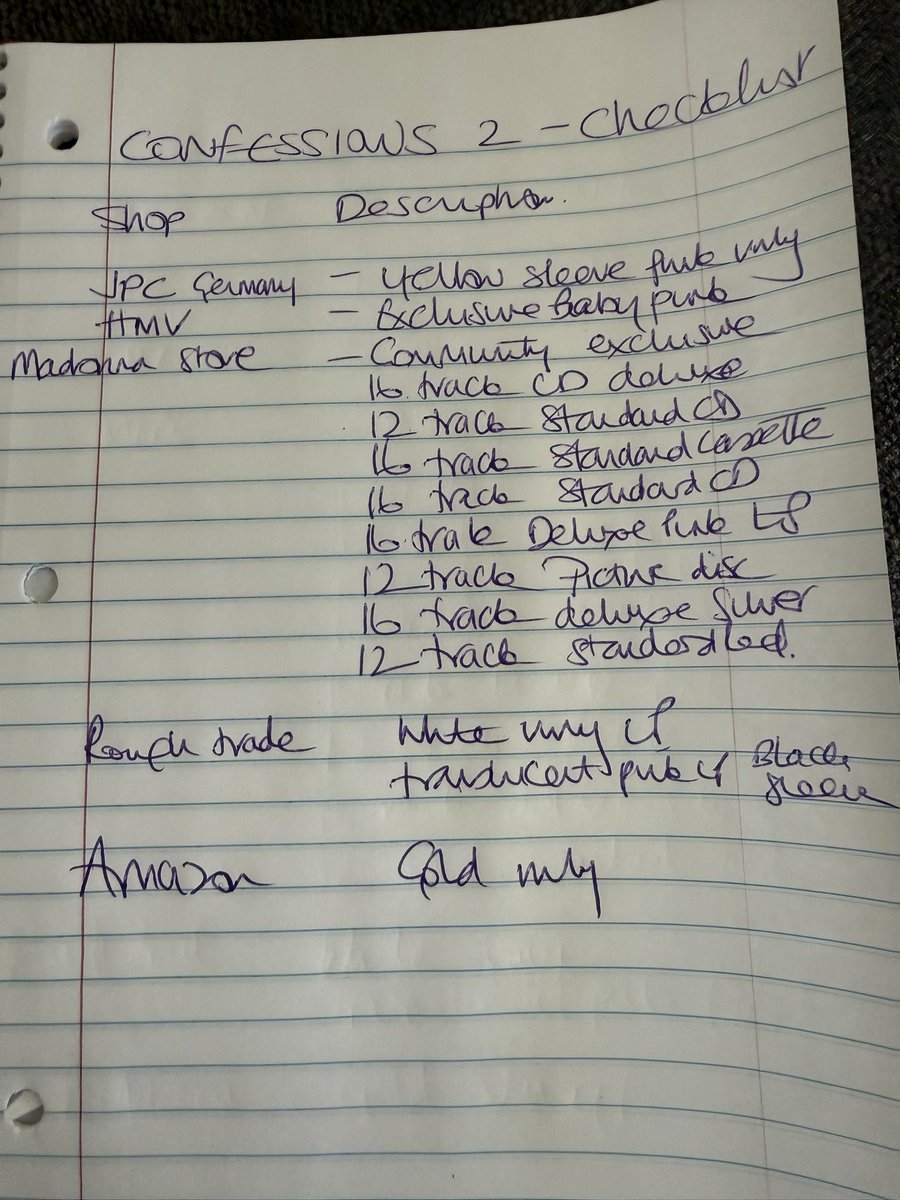 CONFESSIONS 2 - Checklist
Shop Description.
JPC Germany - Yellow sleeve pink vinyl
HMV - Exclusive Baby pink
Madonna Store - Community exclusive
16 track CD deluxe
12 track Standard CD
16 track Standard Cassette
16 track Standard CD
16 track Deluxe Pink LP
12 track Picture disc
16 track deluxe Silver
12 track standard
Rough trade White vinyl LP
translucent pink LP Black Sleeve
Amazon Gold vinyl